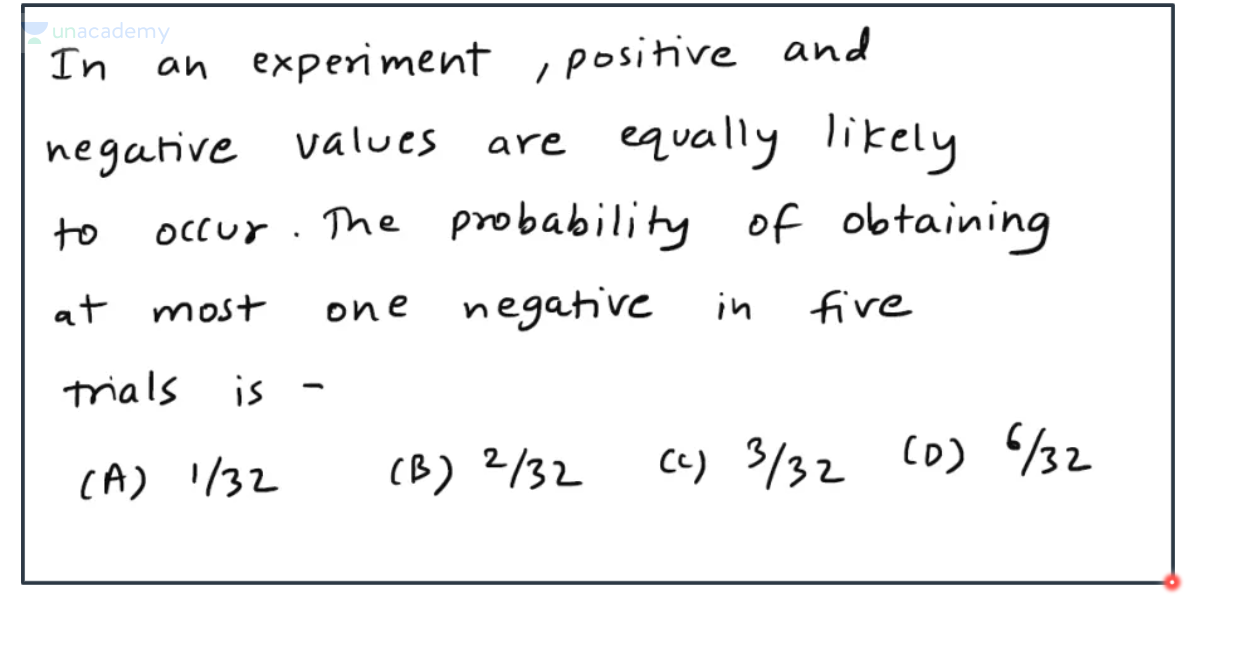 unacademy
In an experiment, positive and
negative values are equally likely
to occur. The probability of obtaining
at most one negative in five
trials is -
(A) 1/32 (B) 2/32 (C) 3/32 (D) 6/32